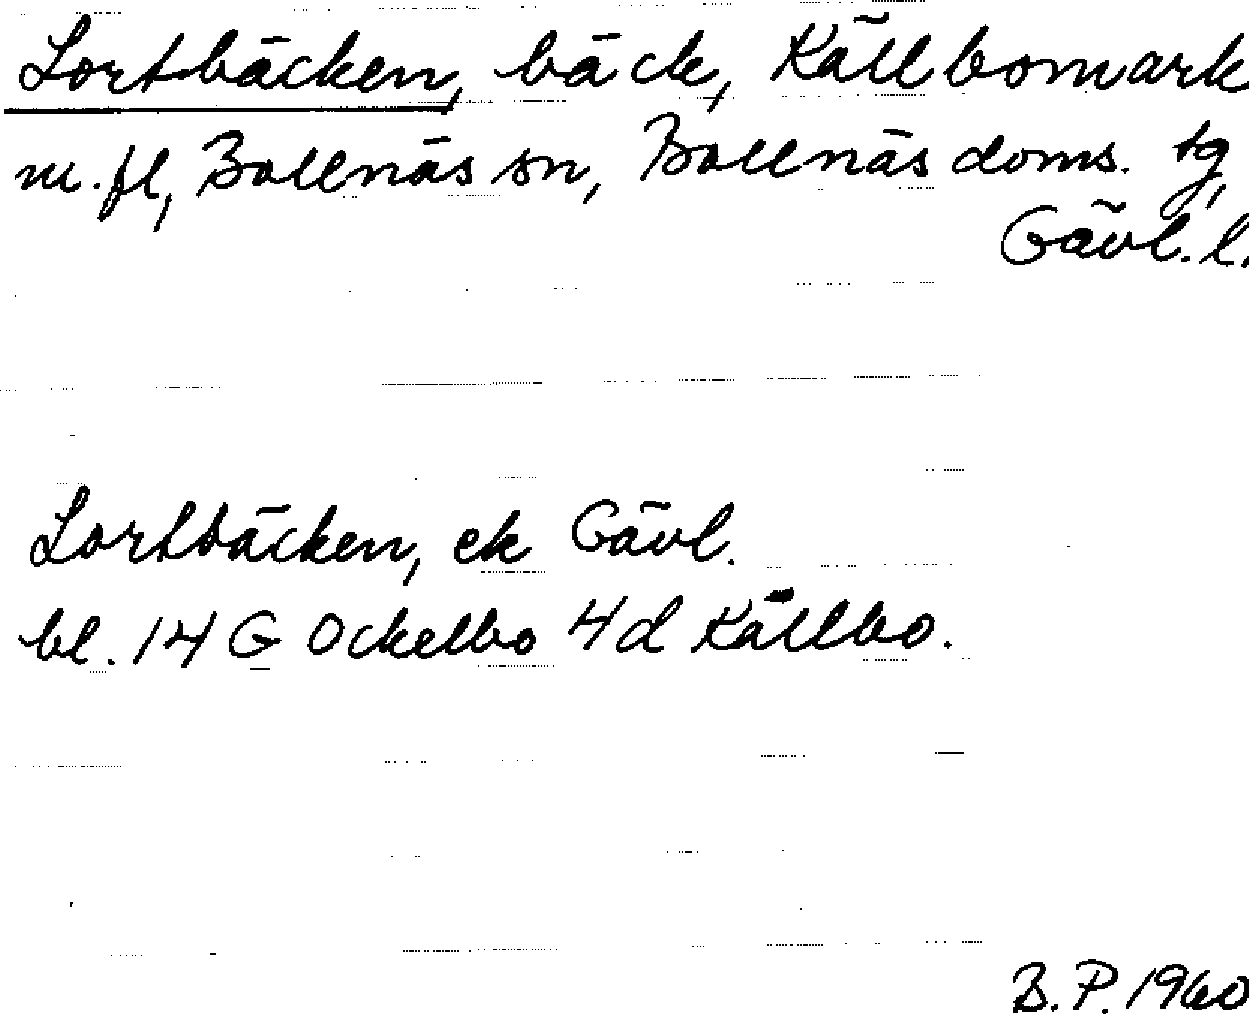 Lortbäcken, bäck, Källbomark
m.fl, Bollnäs sn, Bollnäs doms. tg,
Gävl. l.
Lortbäcken, ek Gävl.
bl. 14 G Ockelbo 4d Källbo.
B. P. 1960